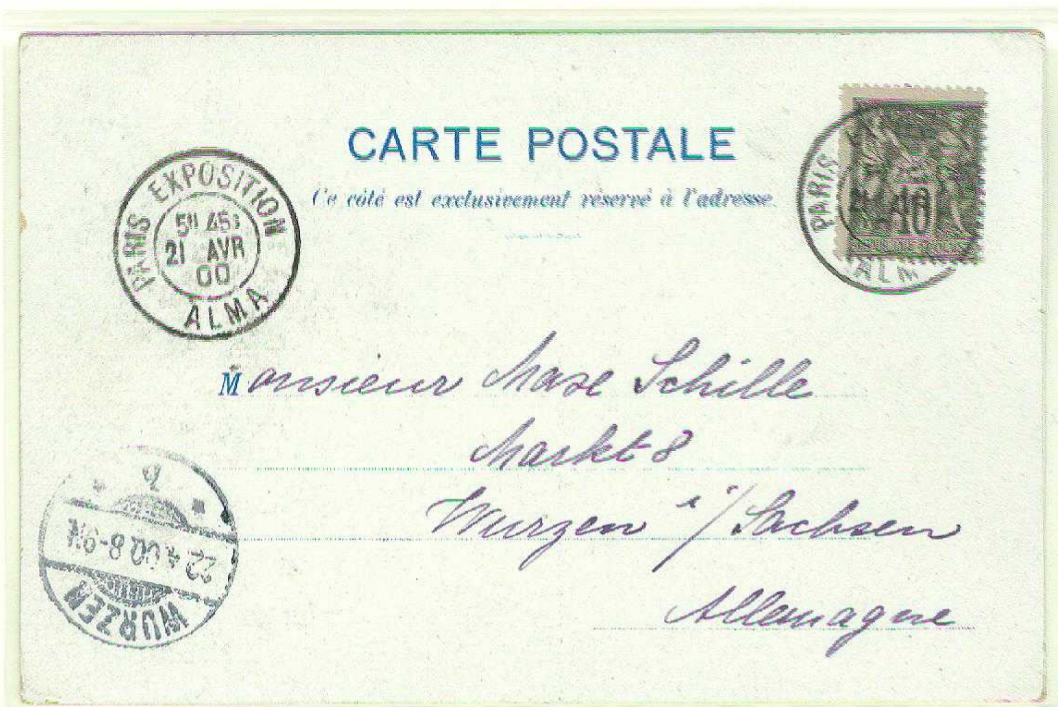 CARTE POSTALE
Ce côté est exclusivement réservé à l'adresse.
PARIS EXPOSITION
5H 45S
21 AVR
00
ALMA
PARIS
10
ALMA
Monsieur Maxe Schille
Markt 8
Wurzen i/Sachsen
Allemagne
WURZEN
22.4.00.8-9N.